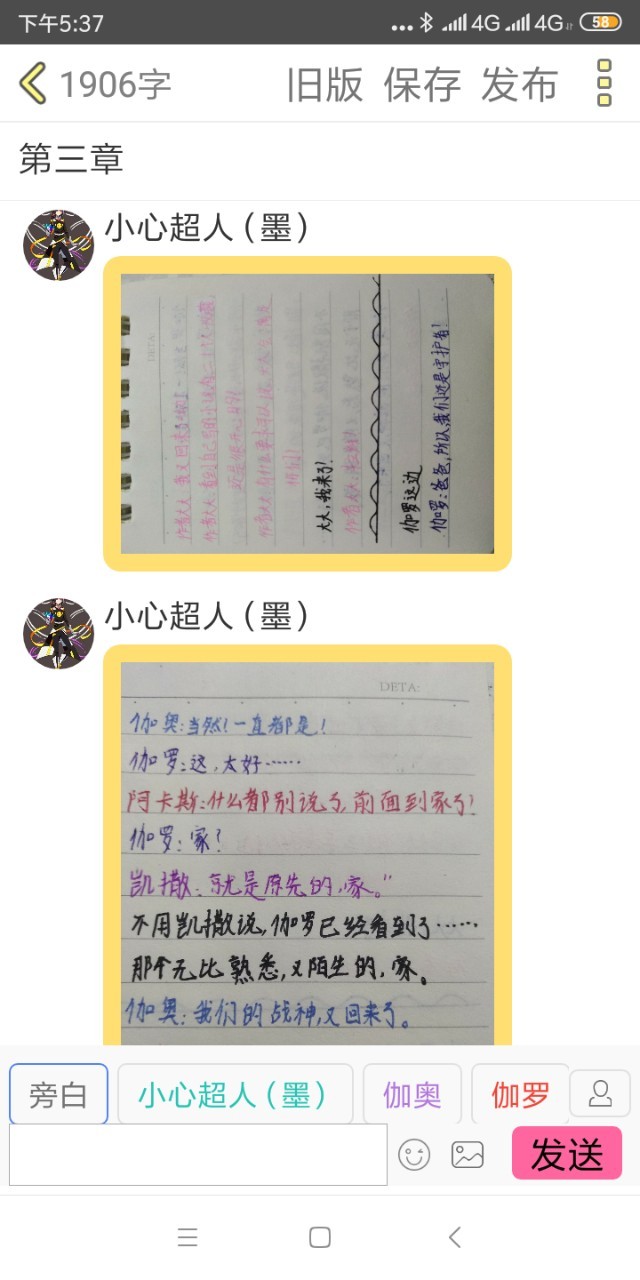 下午5:37
... 4G 4G 58
1906字 旧版 保存 发布
第三章
小心超人（墨）
DETA
大大,我来了!
伽罗这边
伽罗:爸爸,所以,我们还是守护者!
小心超人（墨）
DETA:
伽奥:当然!一直都是!
伽罗:这,太好……
阿卡斯:什么都别说了,前面到家了!
伽罗:家?
凯撒:就是原先的,家。”
不用凯撒说,伽罗已经看到了……
那个无比熟悉,又陌生的,家。
伽奥:我们的战神,又回来了。
旁白 小心超人（墨） 伽奥 伽罗
发送